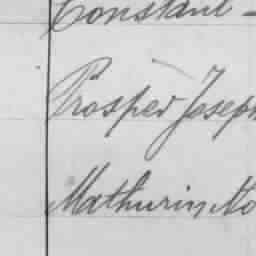 Constant -
Prosper Joseph
Mathurin No